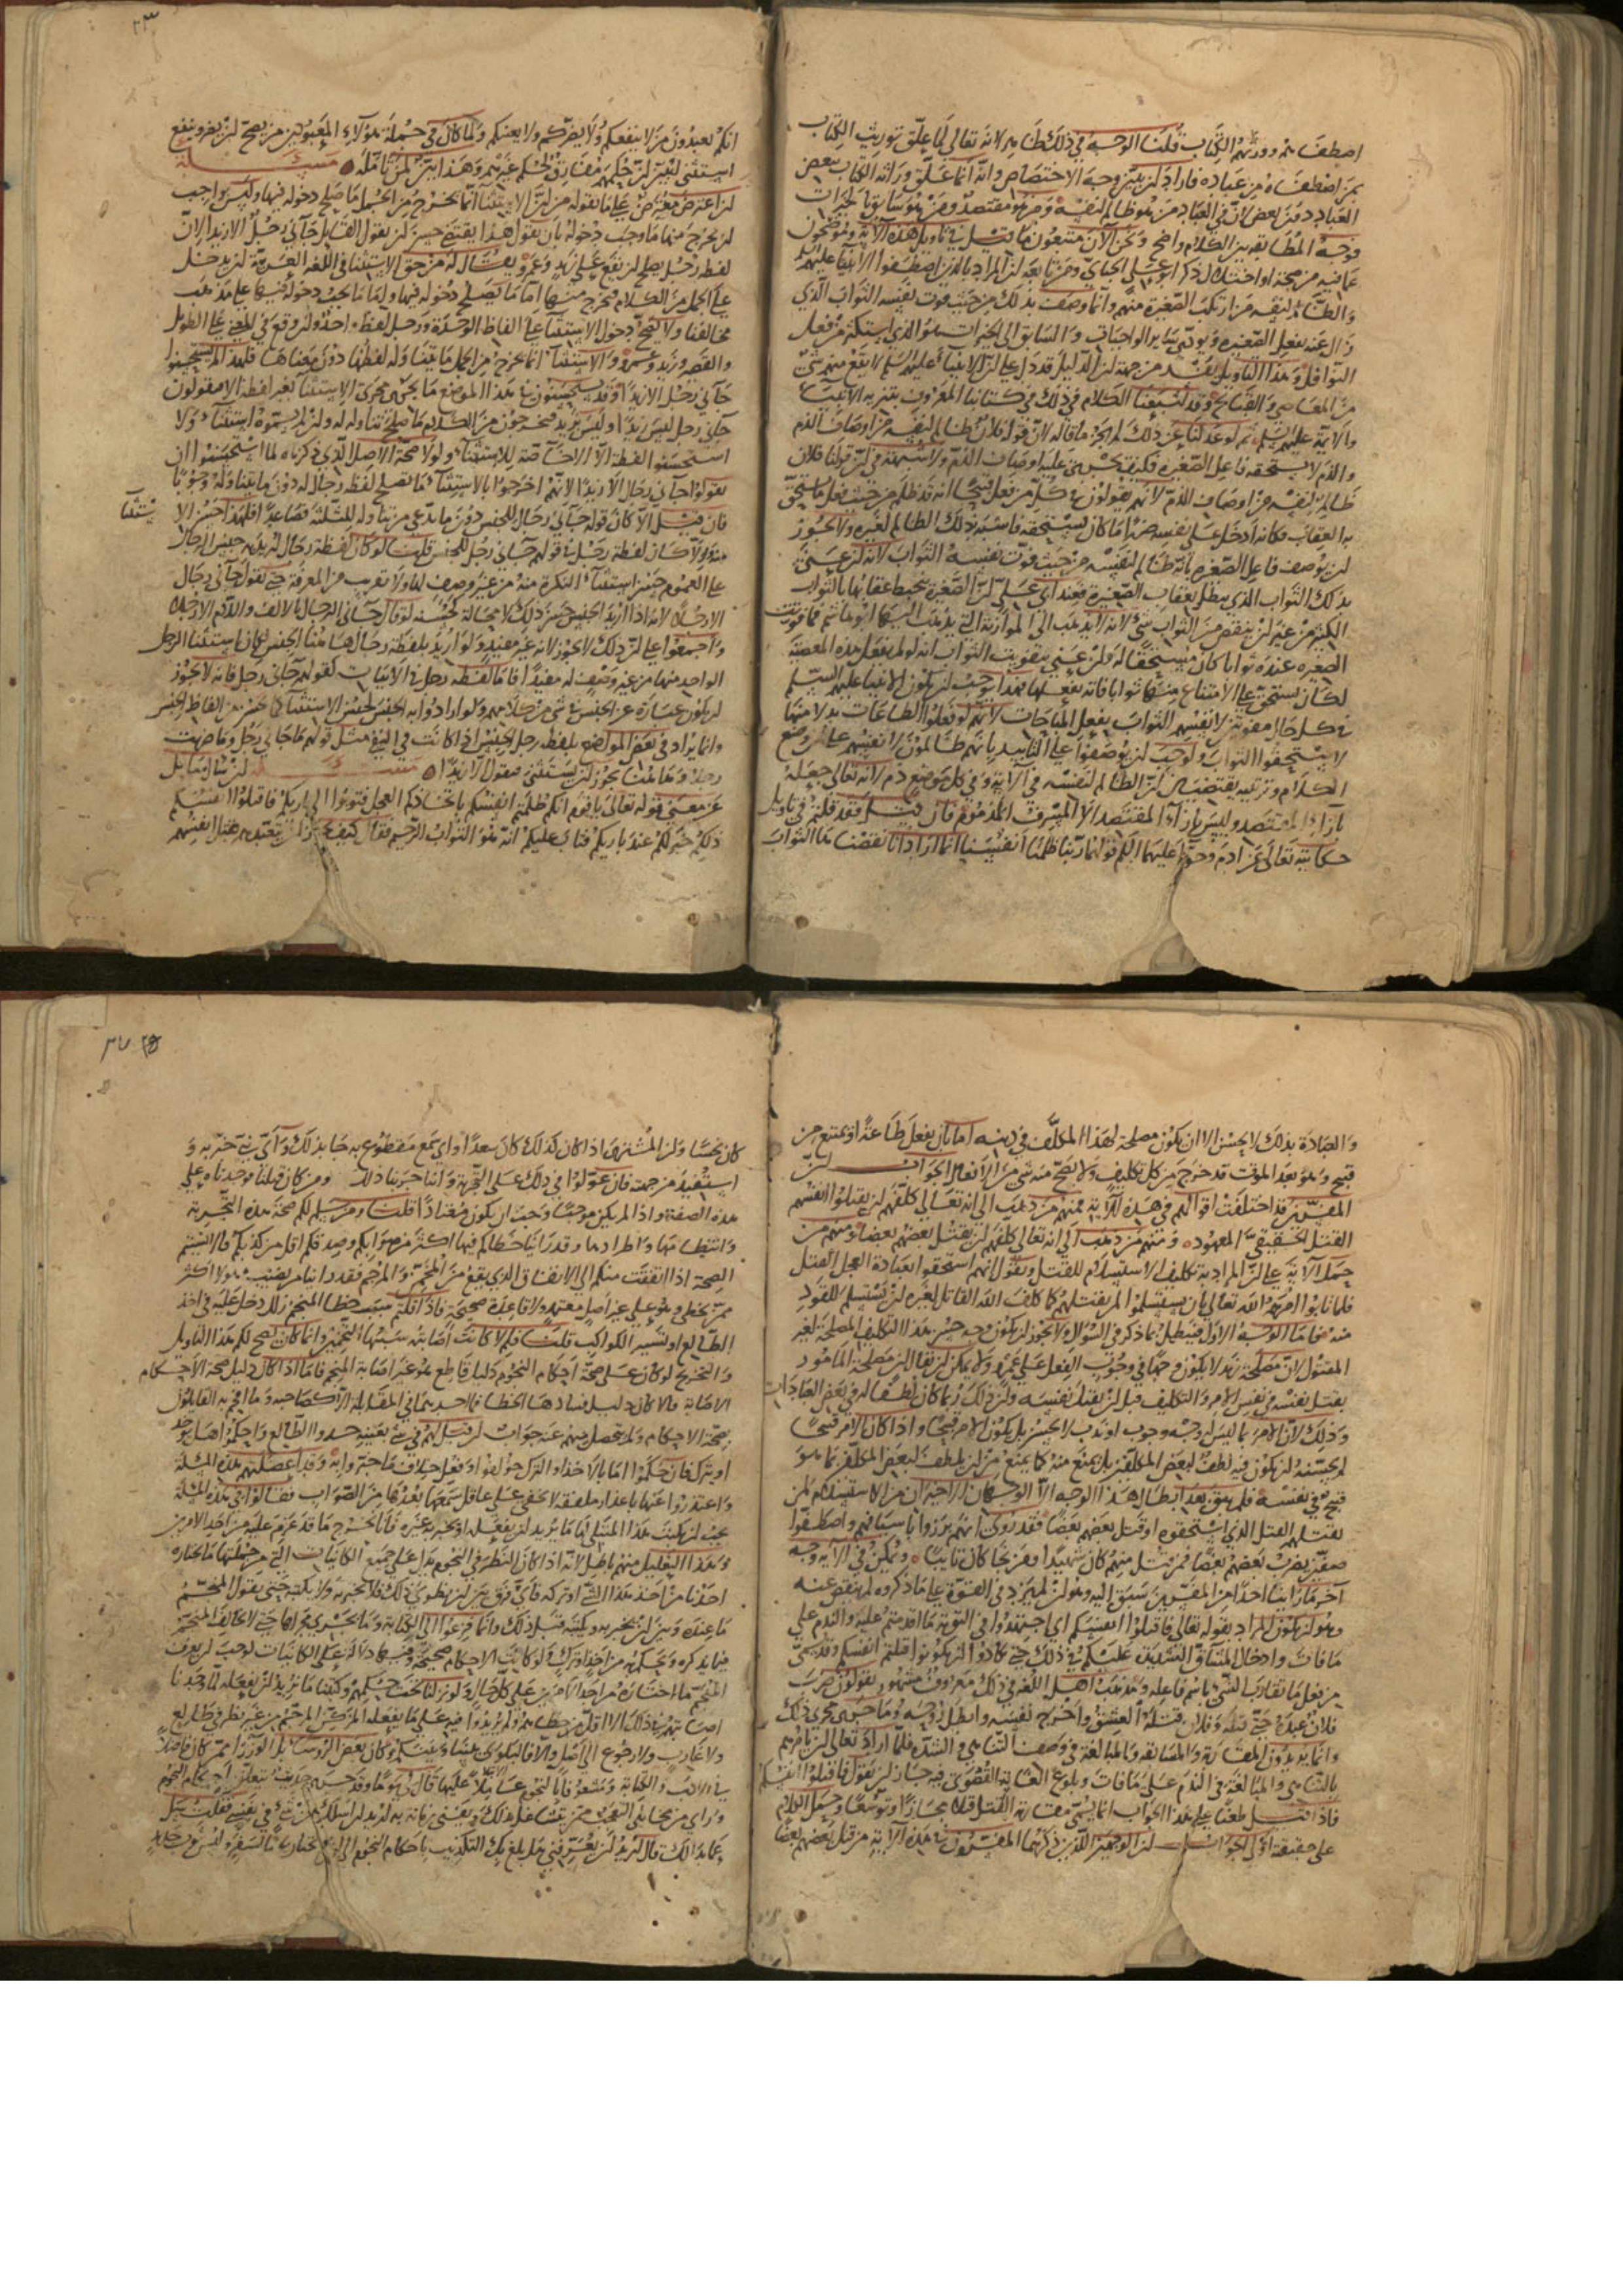 اصطفـ بهم وورثهم الكتاب قلنا الوجه في ذلك ظاهر لانه تعالى لما علق توريث الكتاب
بمن اصطفاه من عباده فاراد ان يبين وجه الاختصاص وانه انما علق وراثة الكتاب ببعض
العباد دون بعض لان في العباد من هو ظالم لنفسه ومن هو مقتصد ومن هو سابق بالخيرات
فوجه المطابقة بين الكلام واضح ونحن الان متبعون ما قيل في تاويل هذه الآية وموضحون
عما فيه من صحة او اختلال ذكر ابو علي الجبائي ومن تابعه ان المراد بالذين اصطفوا الانبيا عليهم السلم
والظالم لنفسه من ارتكب الصغيرة منهم وانما وصف بذلك من حيث فوت نفسه الثواب الذي
زال عنه بفعل الصغيرة ويؤدي ساير الواجبات والسابق الى الخيرات هو الذي يستكثر من فعل
النوافل وهذا التاويل يفسد من جهة ان الدليل قد دل على ان الانبياء عليهم السلم لا يقع منهم شئ
من المعاصي والقبائح وقد اشبعنا الكلام في ذلك في كتابنا المعروف بتنزيه الانبياء
والائمة عليهم السلم ثم لو عدلنا عن ذلك لم يجز ما قاله لان قولنا فلان ظالم لنفسه من اوصاف الذم
والذم لا يستحقه فاعل الصغيرة فكيف يجري عليه اوصاف الذم ولا شبهة في ان قولنا فلان
ظالم لنفسه من اوصاف الذم لانهم يقولون في كل من فعل قبيحا انه قد ظلم من حيث فعل ما يستحق
به العقاب فكانه ادخل على نفسه ضررا ما كان يستحقه فاشبه ذلك الظالم لغيره ولا يجوز
ان يوصف فاعل الصغيرة بانه ظالم لنفسه من حيث فوت نفسه الثواب لانه ان عنى
بذلك الثواب الذي يبطل بعقاب الصغيرة فعند ابي علي ان الصغيرة ينحبط عقابها بالثواب
الكثير من غير ان ينقص من الثواب شئ لانه لا يذهب الى الموازنة التي يذهب اليها ابو هاشم فما فوتت
الصغيرة عنده ثوابا كان مستحقا له وان عنى بتفويت الثواب انه لو لم يفعل هذه المعصية
لكان يستحق على الامتناع منها ثوابا فاته بفعلها فهذا يوجب ان يكون الانبيا عليهم السلم
في كل حال مفوتين لانفسهم الثواب بفعل المباحات لانهم لو فعلوا الطاعات بدلا منها
لاستحقوا الثواب ولوجب ان يوصفوا على التابيد بانهم ظالمون لانفسهم على ان وضع
الكلام وترتيبه يقتضيان ان الظالم لنفسه في الآية وفي كل موضع ذم لانه تعالى جعله
بازاء المقتصد وليس بازاء المقتصد الا المسرف المذموم فان قيل فقد قلتم في تاويل
حكايته تعالى عن ادم وحوا عليهما السلم قولهما ربنا ظلمنا انفسنا انما ارادا انا نقصنا هذا الثواب
٢٣
انكم تعبدون من لا ينفعكم ولا يضركم ولا يغنيكم ولما كان في جملة هؤلاء المعبودين من يصح ان يضر وينفع
استثنى ليبين ان حكمهم مفارق لحكم غيرهم وهذا بين لمن تامله مسئلة
ان اعترض معترض على ما نقوله من ان الاستثناء انما يخرج من الجمل ما صلح دخوله فيها وليس بواجب
ان يخرج منها ما وجب دخوله بان يقول هذا يقتضي حسن ان يقول القائل جاءني رجل الا زيد الان
لفظة رجل يصلح ان يقع على زيد وعمرو يقال له من حق الاستثنا في اللغه العربية ان يدخل
على الجمل من الكلام فيخرج منها اما ما يصلح دخوله فيها واما ما يجب دخوله فيها على مذهب
مخالفنا ولا يصح دخول الاستثنا على الفاظ الوحدة ورجل لفظ واحد وان وقع في المعنى على الطويل
والقصير وزيد وعمرو والاستثنا انما يخرج من الجمل ما يتناوله لفظها دون معناها فلهذا لم يستحسنوا
جاني رجل الا زيد او قد يستحسنون في هذا الموضع ما يجري مجرى الاستثنا بغير لفظة الا فيقولون
جاني رجل ليس زيدا وليس بزيد فيخرجون من الكلام ما صلح تناوله له وان لم يسموه استثناء ولا
استحسنوا لفظة الا الاختصاصه للاستثناء ولولا صحة الاصل الذي ذكرناه لما استحسنوا ان
يقولوا جاني رجال الا زيدا لانهم اخرجوا بالاستثناء ما يصلح لفظة رجال له دون ما يتناوله وجوبا
فان قيل الا كان قولهم جاءني رجال للجنس دون ما يدعى من تناوله للثلثة فصاعدا فلهذا حسن الا
يستثنا
على العموم حسن استثناء النكرة منه من غير وصف لها ولا تقريب من المعرفة حتى يقول جاني رجال
الا رجلا لانه اذا اريد الجنس حسن ذلك لا محالة كحسنه لو قال جاني الرجال بالالف واللام الا رجلا
واجمعوا على ان ذلك لا يجوز لانه غير مفيد ولو اريد بلفظة رجال هاهنا الجنس لجاز استثنا الرجل
الواحد منها من غير وصف له مفيد فاما لفظة رجل في الاثبات كقولهم جاني رجل فانه لا يجوز
ان يكون عبارة عن الجنس في شئ من كلامهم ولو ارادوا به الجنس لحسن الاستثنا كما يحسن من الفاظ الجنس
وانما يراد في بعض المواضع بلفظة رجل الجنس اذا كانت في النفي مثل قولهم ما جاني رجل وما ضربت
رجلا وهاهنا يجوز ان يستثنى فيقول الا زيدا مسئلة ان سال سايل
عن معنى قوله تعالى يا قوم انكم ظلمتم انفسكم باتخاذكم العجل فتوبوا الى باريكم فاقتلوا انفسكم
ذلكم خير لكم عند باريكم فتاب عليكم انه هو التواب الرحيم فقال كيف يجوز ان يتعبدهم بقتل انفسهم
والعبادة بذلك لا يحسن الا ان يكون مصلحة لهذا المكلف في دينه اما بان يفعل طاعة او يمتنع من
قبيح وهو بعد الموت قد خرج من كل تكليف ولا يصح منه شئ من الافعال الجواب ان
المفسرين قد اختلفت اقوالهم في هذه الآية فمنهم من ذهب الى انه تعالى كلفهم ان يقتلوا انفسهم
القتل الحقيقي المعهود ومنهم من ذهب الى انه تعالى كلفهم ان يقتل بعضهم بعضا ومنهم من
حمل الآية على ان المراد به تكليف الاستسلام للقتل ويقول انهم استحقوا بعبادة العجل القتل
فلما تابوا امرهم الله تعالى بان يستسلموا لمن يقتلهم كما كلف الله القاتل لغيره ان يستسلم للقود
منه فاما الوجه الاول فيبطل بما ذكر في السوال ولا يجوز ان يكون وجه حسن هذا التكليف المصلحة لغير
المقتول لان مصلحة زيد لا يكون وجها في وجوب الفعل على عمرو ولا يمكن ان يقال ان مصلحة المامور
بقتل نفسه في نفس الامر والتكليف قبل ان يقتل نفسه وان ذلك ربما كان لطفا له في بعض العبادات
وذلك لان الامر بما ليس له وجه وجوب او ندب لا يحسن بل يكون الامر قبيحا واذا كان الامر قبيحا
لم يحسنه ان يكون فيه لطف لبعض المكلفين بل يمنع منه كما يمنع من ان يلطف لبعض المكلفين بما هو
قبيح في نفسه فلم يبق بعد ابطال هذا الوجه الا الوجهان الراجعان من الاستسلام لمن
يقتلهم القتل الذي استحقوه او قتل بعضهم بعضا فقد روى انهم برزوا باسيافهم واصطفوا
صفين يضرب بعضهم بعضا فمن قتل منهم كان شهيدا ومن نجا كان تايبا ويمكن في الآية وجه
آخر ما راينا احدا من المفسرين سبق اليه وهو ان لم يزد في القوة على ما ذكروه لم ينقص عنه
وهو ان يكون المراد بقوله تعالى فاقتلوا انفسكم اي اجتهدوا في التوبة مما اقدمتم عليه والندم على
ما فات وادخال المشاق الشديدة عليكم في ذلك حتى تكادوا ان تكونوا قتلتم انفسكم وقد يسمى
من يفعل ما يقارب الشئ باسم فاعله ومذهب اهل اللغه في ذلك معروف مشهور يقولون ضرب
فلان عبده حتى قتله وفلان قتله العشق واخرج نفسه وابطل روحه وما جرى مجرى ذلك
وانما يريدون المقاربة والمشابهة والمبالغة في وصف التناهي والشدة فلما اراد تعالى ان يامرهم
بالتناهي والمبالغة في الندم على ما فات وبلوغ الغاية القصوى فيه جاز ان يقول فاقتلوا انفسكم
فاذا قيل طعنا على هذا الجواب انما يسمى مقاربة القتل قتلا مجازا وتوسعا وحمل الكلام
على حقيقته اولى الجواب ان الوجهين اللذين ذكرهما المفسرون في هذه الآية من قتل بعضهم بعضا
٢٧
كان نحسا وان المشترى اذا كان كذلك كان سعدا واي سمع مقطوع به جا بذلك واي نبي خبر به و
استفيد من جهته فان عولوا في ذلك على التجربة واننا جربنا ذلك ومن كان قبلنا فوجدناه على
هذه الصفة واذا لم يكن موجبا وجب ان يكون معتادا قلنا ومن سلم لكم صحة هذه التجربة
وانتظامها واطرادها وقد راينا خطاكم فيها اكثر من صوابكم وصدقكم اقل من كذبكم فالا نسبتم
الصحة اذا اتفقت منكم الى الاتفاق الذي يقع من المخمن والمرجم فقد راينا من يصيب هولا اكثر
ممن يخطي وهو على غير اصل معتمد ولا قاعدة صحيحة فاذا قلتم سبب خطا المنجم زلل دخل عليه في اخذ
الطالع او تسيير الكواكب قلنا فلم لا كانت اصابته سببها التخمين وانما كان يصح لكم هذا التاويل
والتخريج لو كان على صحة احكام النجوم دليل قاطع هو غير اصابة المنجم فاما اذا كان دليل صحة الاحكام
الاصابة فالا كان دليل فسادها الخطا فما احدهما في المقابلة الا كصاحبه وما افحم به القايلون
بصحة الاحكام ولم يتحصل منهم عنه جواب ان قيل لهم في شئ بعينه خذوا الطالع واحكموا هل يوخذ
او يترك فان حكموا اما بالاخذ او الترك خولفوا وفعل خلاف ما خبروا به وقد اعضلتهم هذه المسئلة
واعتذروا عنها باعذار ملفقة لا يخفى على عاقل سمعها بعدها من الصواب فقالوا في هذه المسئلة
يجب ان يكتب هذا المبتلى بها ما يريد ان يفعله او يخبر به غيره فانا نخرج ما قد عزم عليه من احد الامرين
وهذا التعليل منهم باطل لانه اذا كان النظر في النجوم يدل على جميع الكاينات التي من جملتها ما يختاره
احدنا من اخذ هذا الشئ او تركه فاي فرق بين ان يطوي ذلك فلا يخبر به ولا يكتبه حتى يقول المنجم
ما عنده وبين ان يخبر به ويكتبه قبل ذلك وانما فزعوا الى الكتابة وما يجري مجراها حتى لا يخالف المنجم
فيما يذكره ويحكم به من اخذ او ترك ولو كانت الاحكام صحيحة وفيها دلالة على الكاينات لوجب ان يعرف
المنجم ما اختاره من احد الامرين على كل حال ولو نزلنا تحت حكمهم وكتبنا ما نريد ان نفعله لما وجدنا
اصابتهم في ذلك الا اقل من خطاهم ولم يزيدوا فيه على ما يفعله المخمن المرجم من غير نظر في طالع
ولا غارب ولا رجوع الى اصل والا فالبلوى بيننا وبينكم وكان بعض الروساء بل الوزراء ممن كان فاضلا
في الادب والكتابة ومشعوفا بالنجوم عاملا عليها قال لي يوما وقد جرى حديث يتعلق باحكام النجوم
وراى من مخايلي التعجب ممن يتشاغل بذلك ويفني زمانه به اريد ان اسالك عن شئ في نفسي فقلت سل
عما بدا لك قال اريد ان تعرفني هل بلغ بك التكذيب باحكام النجوم الى ان لا تختار يوما لسفر ولبس ثوب جديد